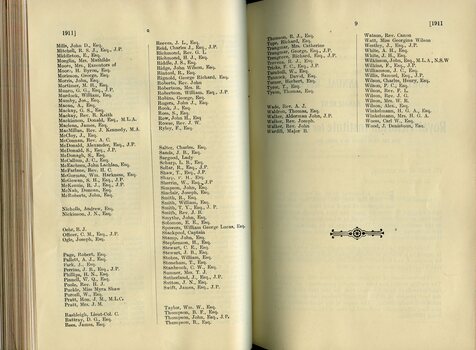 1911]
Mills, John D., Esq.
Mitchell, R. S. J., Esq., J.P.
Middleton, E., Esq.
Monglia, Mrs. Mathilda
Moore, Mrs., Executors of
Moore, H. Byron, Esq.
Morieson, George, Esq.
Morris, John, Esq.
Mortimer, M. R., Esq.
Moors, G. G., Esq., J.P.
Murdoch, William, Esq.
Munby, Jos., Esq.
Munn, A., Esq.
Mackay, G. S., Esq.
Mackay, Rev. R. Keith
Mackinnon, Donald, Esq., M.L.A.
Macleon, James, Esq.
MacMillan, Rev. J. Kennedy, M.A.
McCloy, J., Esq.
McConnan, Rev. A. C.
McDonald, Alexander, Esq., J.P.
McDonald, S., Esq., J.P.
McDonagh, S., Esq.
McCallum, J. C., Esq.
McEachern, John Lachlan, Esq.
McFarlane, Rev. H. C.
McGowan, Wm. Harkness, Esq.
McGowan, S. H., Esq., J.P.
McKenzie, R. J., Esq., J.P.
McNab, Duncan, Esq.
McRoberts, John, Esq.
Nicholls, Andrew, Esq.
Nickinson, J. N., Esq.
Oehr, R. J.
Officer, C. M., Esq., J.P.
Ogle, Joseph, Esq.
Page, Robert, Esq.
Pallett, A. J., Esq.
Park, J., Esq.
Perrins, J. B., Esq., J.P.
Phillips, H. N., Esq.
Pinnell, W. Q., Esq.
Poole, Rev. H. J.
Puckle, Miss Myra Shaw
Purcell, W., Esq.
Pratt, Mon. J. M., M.L.C.
Pratt, Mrs. J. M.
Rashleigh, Lieut-Col. C.
Rattray, D. G., Esq.
Rees, James, Esq.
Reeves, J. L., Esq.
Reid, Charles J., Esq., J.P.
Richmond, Rev. G. L.
Richmond, H. J., Esq.
Riddle, J. S., Esq.
Ridge, John Wilson, Esq.
Rintoul, R., Esq.
Rignold, George Richard, Esq.
Roberts, Rev. John
Robertson, Mrs. R.
Robertson, William G., Esq.
Robins, George, Esq.
Rogers, John J., Esq.
Rook, J., Esq.
Ross, G., Esq.
Row, John H., Esq.
Rowse, Rev. J. W.
Ryley, F., Esq.
Salter, Charles, Esq.
Sands, J. R., Esq.
Sargood, Lady
Scharp, L. B., Esq.
Sellar, R., Esq., J.P.
Shaw, T., Esq., J.P.
Sharp, J. H., Esq.
Sherrin, W., Esq., J.P.
Simpson, John, Esq.
Sinclair, Joseph, Esq.
Smith, B., Esq.
Smith, William, Esq.
Smith, T. Y., Esq., J.P.
Smith, Rev. J. B.
Smythe, John, Esq.
Solomon, E. E., Esq.
Spowers, William George Lucas, Esq.
Stackpool, Captain
Stamp, John, Esq.
Stephenson, H., Esq.
Stewart, C. R., Esq.
Stewart, J. B., Esq.
Stokes, William, Esq.
Stoneham, T., Esq.
Stanhouck, C. W., Esq.
Sumner, Mrs. T. J.
Sutherland, J., Esq., J.P.
Sutton, J. N., Esq.
Swift, James, Esq., J.P.
Taylor, Wm. W., Esq.
Thompson, B. F., Esq.
Thompson, John, Esq., J.P.
Thompson, R., Esq.
9
[1911
Thomson, R. J., Esq.
Tope, Richard, Esq.
Tranguar, Mrs. Catherine
Tranguar, George, Esq., J.P.
Trenoweth, Richard, Esq., J.P.
Tricks, F. C., Esq., J.P.
Turnbull, W., Esq.
Tweddle, David, Esq.
Turner, Herbert, Esq.
Tytor, T., Esq.
Tyson, Thomas, Esq.
Wade, Rev. A. J.
Waldon, Thomas, Esq.
Walker, Alderman John, J.P.
Walker, Rev. Joseph
Walker, Rev. John
Wardill, Major B.
Watson, Rev. Canon
Watt, Miss Georgina Wilson
Westley, J., Esq., J.P.
White, A. H., Esq.
White, J. H., Esq.
Wilkinson, John, Esq., M.L.A., N.S.W
Williams, F., Esq., J.P.
Williamson, J. C., Esq.
Willis, Samuel, Esq., J.P.
Wilson, Charles, Esq.
Wilson, P. C., Esq.
Wilson, F., Esq.
Wilson, Rev. J. G.
Wilson, Mrs. W. R.
Wilson, Alex., Esq.
Winkelmann, H. G. A., Esq.
Winkelmann, Mrs. H. G. A.
Wisse, Carl W., Esq.
Wood, J. Dennistoun, Esq.